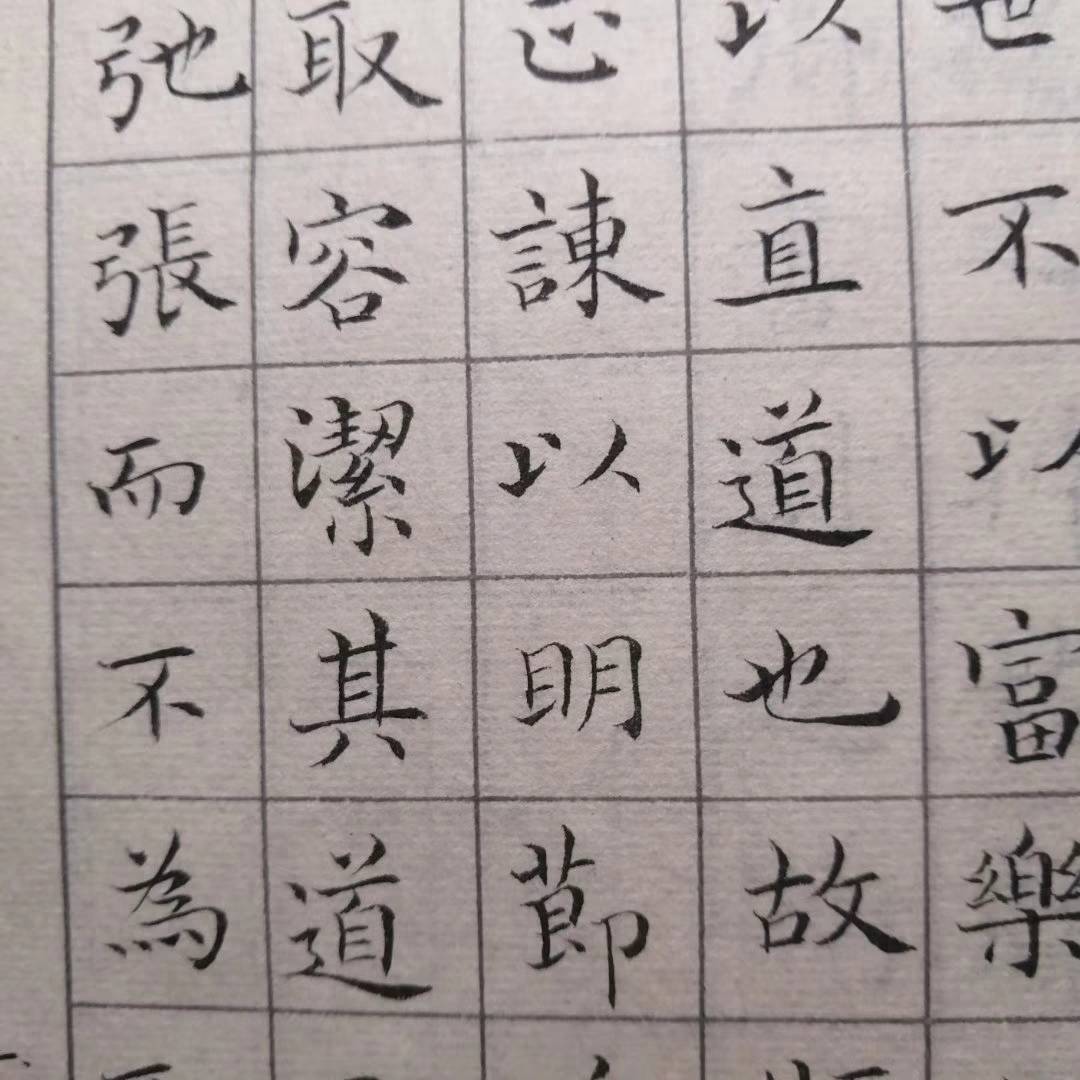 世不以富樂
以直道也故
正諫以明節
取容潔其道
弛張而不為